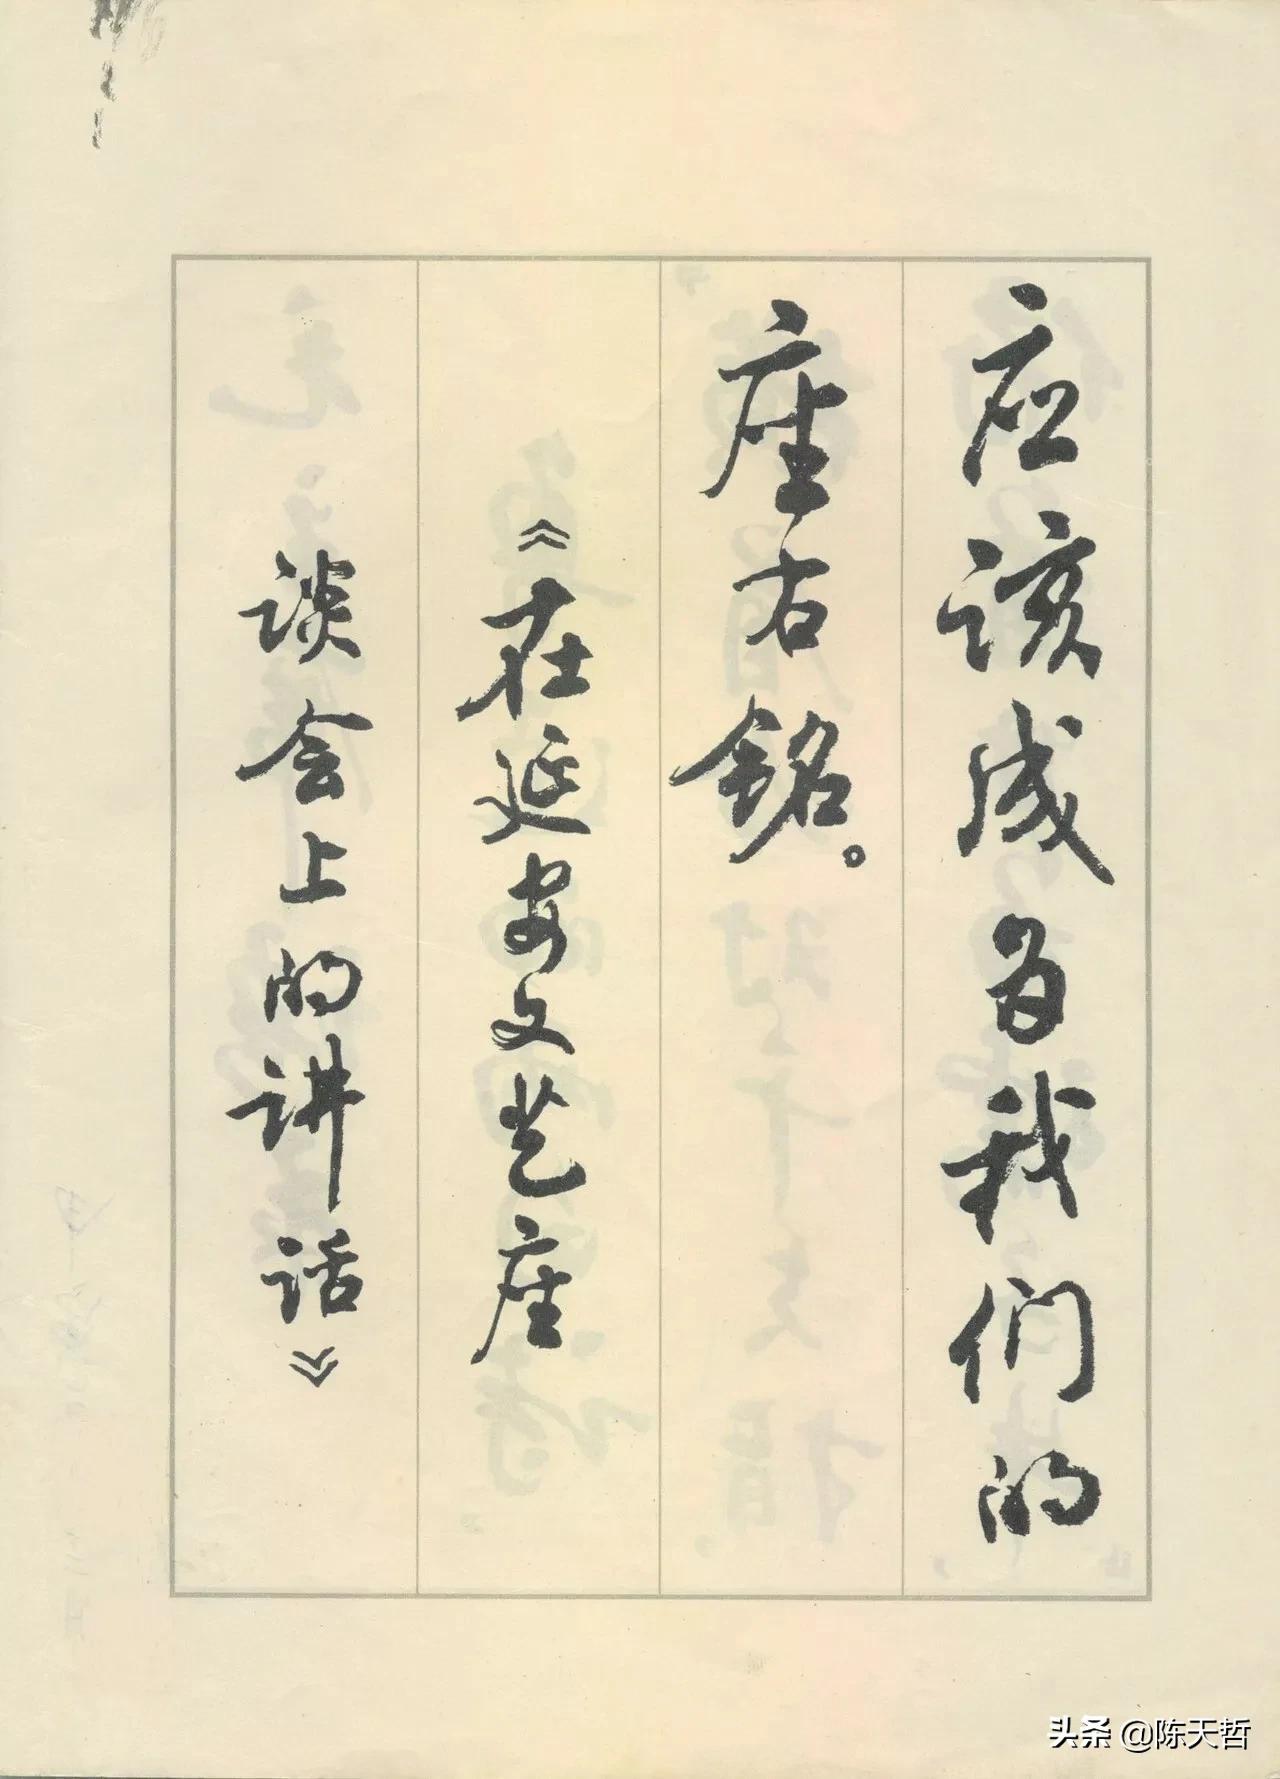 应该成为我们的
座右铭。
《在延安文艺座
谈会上的讲话》
头条 @陈天哲